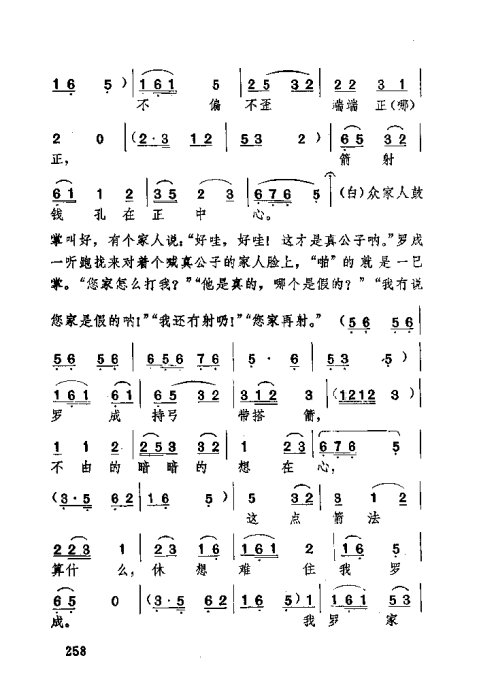 1 6 5 ) | 1 6 1 5 | 2 5 3 2 | 2 2 3 1 |
不 偏 不歪 端端 正(哪)
2 0 | ( 2 · 3 1 2 | 5 3 2 ) | 6 5 3 2 |
正, 箭 射
6 1 1 2 | 3 5 2 3 | 6 7 6 5 (白)众家人鼓
钱 孔 在 正 中 心。
掌叫好,有个家人说:“好哇,好哇!这才是真公子呐。”罗成
一听跑拢来对着个赋真公子的家人脸上,“啪”的就是一巴
掌。“您家怎么打我?”“他是真的,哪个是假的?”“我冇说
您家是假的呐!”“我还冇射吵!”“您家再射。” ( 5 6 5 6 |
5 6 5 6 | 6 5 6 7 6 | 5 · 6 | 5 3 5 ) |
1 6 1 6 1 | 6 5 3 2 | 3 1 2 3 | ( 1 2 1 2 3 ) |
罗 成 持弓 带搭 箭,
1 1 2 | 2 5 3 3 2 | 1 2 3 | 6 7 6 5 |
不 由 的 暗 暗 的 想 在 心,
( 3 · 5 6 2 | 1 6 5 ) | 5 3 2 | 3 1 2 |
这 点 箭 法
2 2 3 1 | 2 3 1 6 | 1 6 1 2 | 1 6 5 |
算什 么,休 想 难 住 我 罗
6 5 0 | ( 3 · 5 6 2 | 1 6 5 ) 1 | 1 6 1 5 3 |
成。 我 罗 家
258